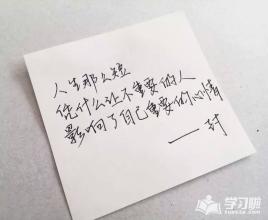 人生那么短
凭什么让不重要的人
影响了自己重要的心情
——封
学习啦